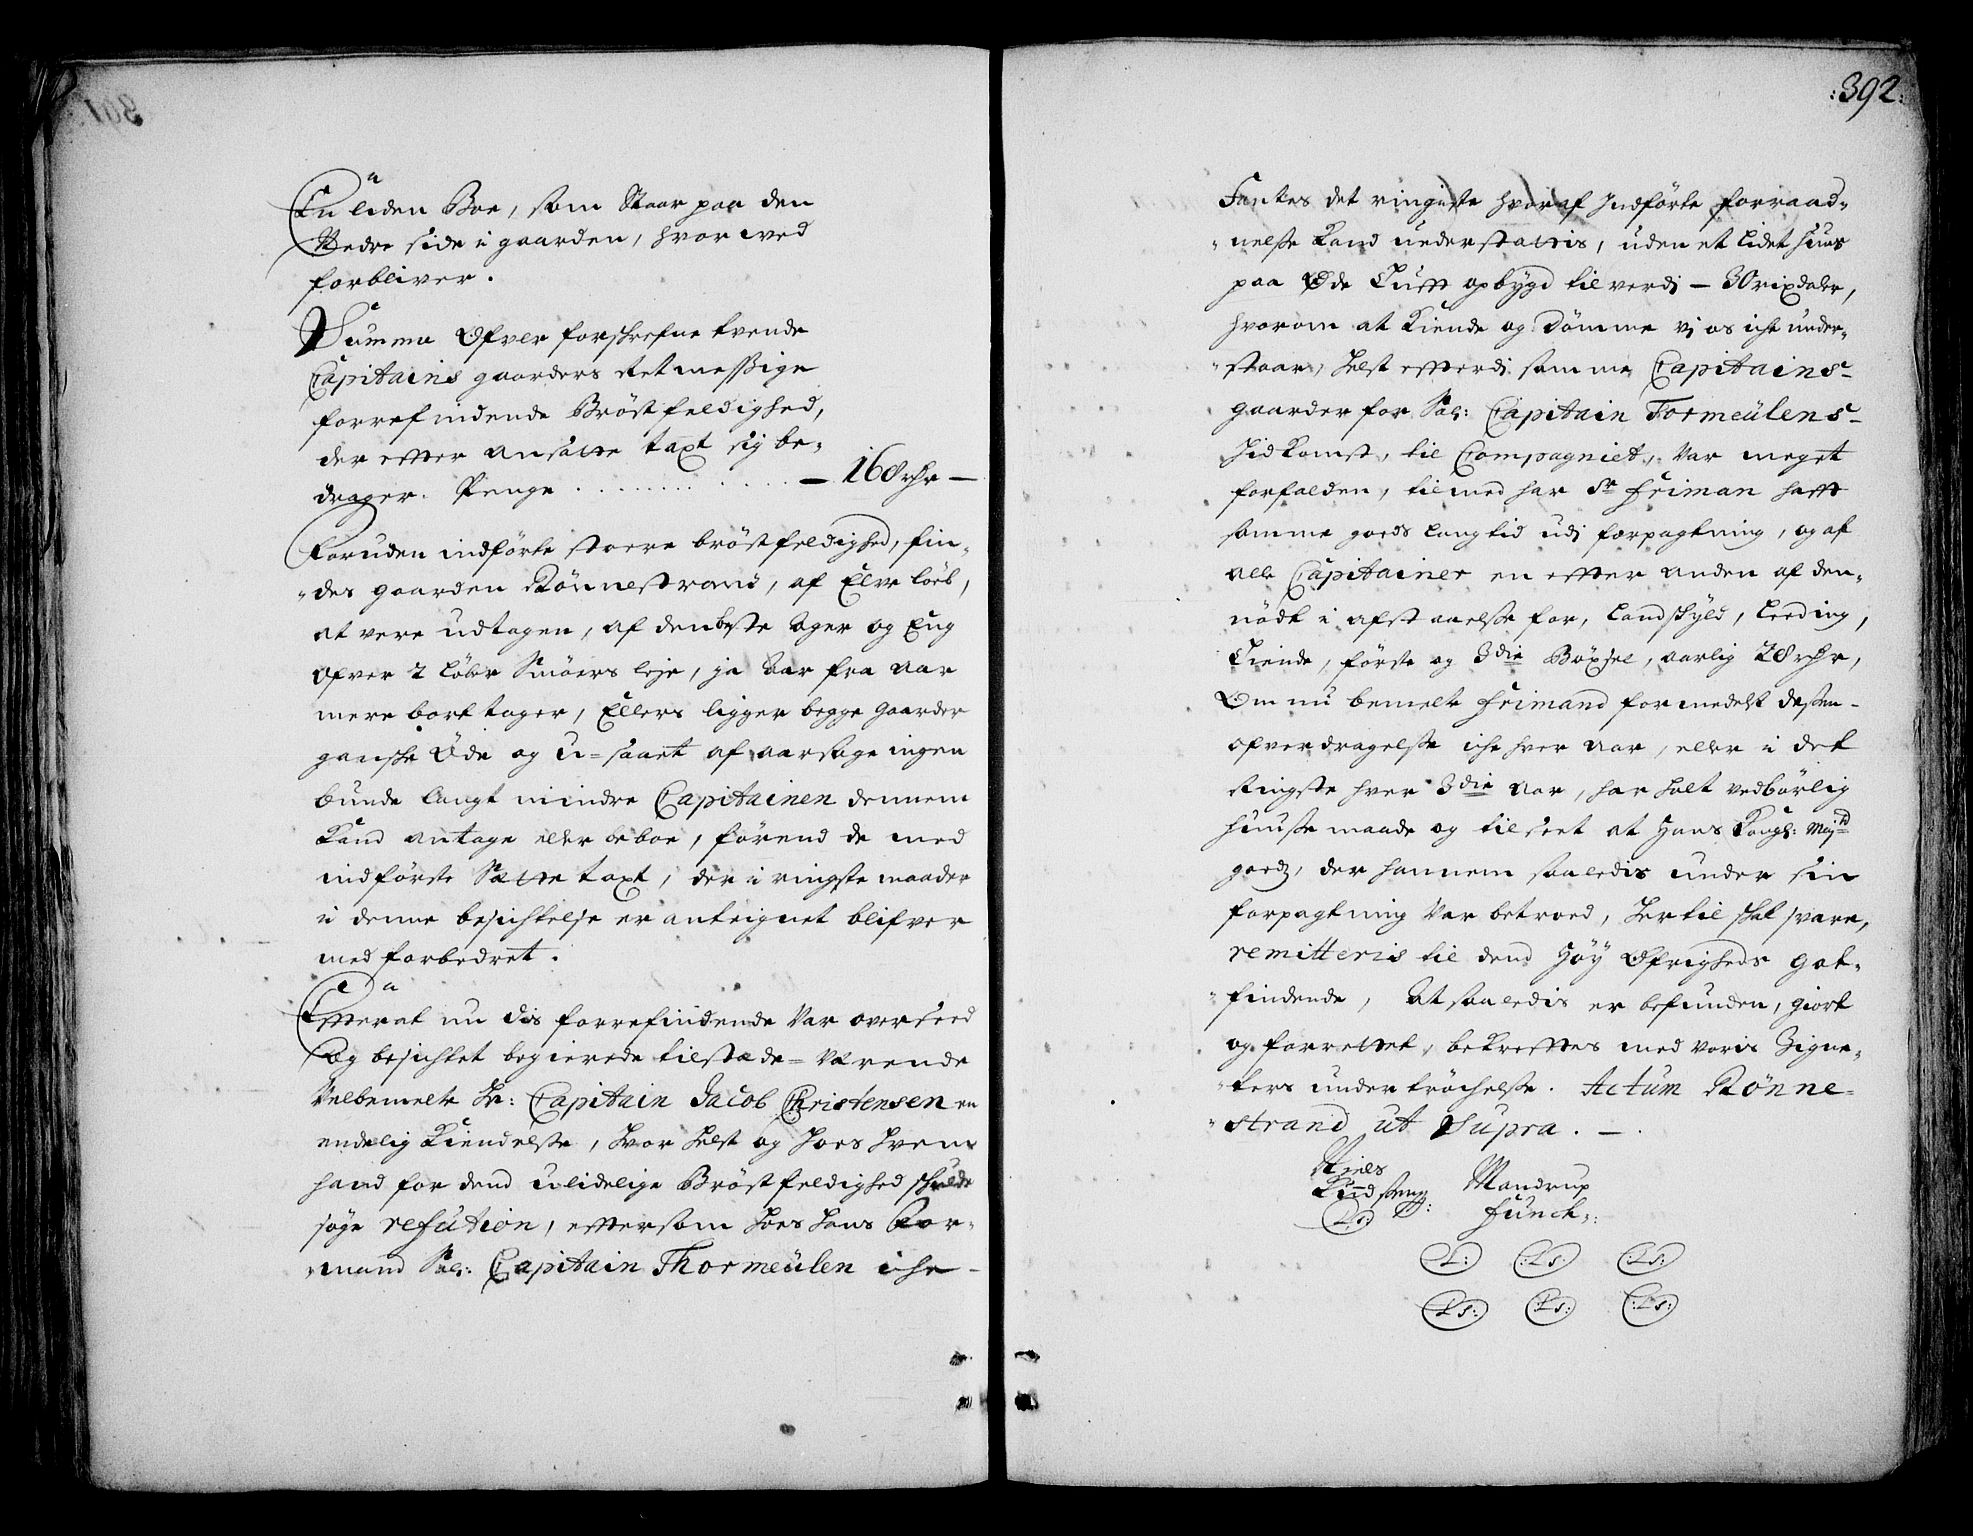 En liden Boe, som Staar paa den
Nedre side i gaarden, hvor wed
forbliver.
Summa Ofver forskrefne tvende
Capitains gaarders Retmessige
forrefindende Bröstfeldighed,
der efter ansatte taxt sig be-
drager. Penge . . . . . . . . . . . — 168 rdr —
Foruden indförte stoere bröstfeldighed, fin-
des gaarden Rönnestrand, af Elve löeb,
at vere udtagen, af den beste Ager og Eng
ofver 2 Löber Smöers leje, ja Aar fra Aar
mere bort tager, Ellers ligger begge gaarder
ganske Öde og U-saaet af aarsage ingen
bunde langt mindre Capitainen dennem
kand antage eller beboe, förend de med
indförte Satte taxt, der i ringste maader
i denne besichtelse er anteignet blifver
med forbedret.
Efterat nu dis forrefindende Var overseed
og besichtet begierede tilstæde-værende
Velbemelte Hr: Capitain Jacob Christensen en
endelig Kiendelse, hvor helst og hoes hvem
hand for dend ulidelige Bröstfeldighed skulde
søge refution, eftersom hoes hans For-
mand Sal: Capitain Thormeülen iche
:392:
Fantes det ringeste hvoraf Indförte forraad-
nelse Kand understattis, uden et lidet huus
paa Öde Tufft opbygd til verdi — 30 rixdaler,
hvorom at Kiende og Dömme vj os iche under-
staar, helst efterdi samme Capitains-
gaarder for Sal: Capitain Tormeülens-
hidkomst, til Compagniet, Var meget
forfalden, tilmed har Sr Friman hafft
samme goeds lang tid udi forpagtning, og af
alle Capitainer en efter anden af den-
nödt i afstaaelse for, Landskyld, Leeding,
Tiende, förste og 3die Böxsel, aarlig 28 rdr,
Om nu bemelte Frimand formedelst dessen-
ofverdragelse iche hver aar, eller i det
Ringste hver 3die aar, har holt vedbörlig
huuse maade og tilseet at Hans Kongl: Mayts
goeds, der hannem saaledis under sin
forpagtning Var betroed, hertil skal svare,
remitteris til dend Höy Øfrigheds got-
findende, At saaledis er befunden, giort
og forrettet, bekreftes med voris Zigne-
ters undertröchelse. Actum Rönne-
strand ut Supra. —.
Niels Mandrup
Funch:
L: :LS: :LS:
LS: LS: :LS: